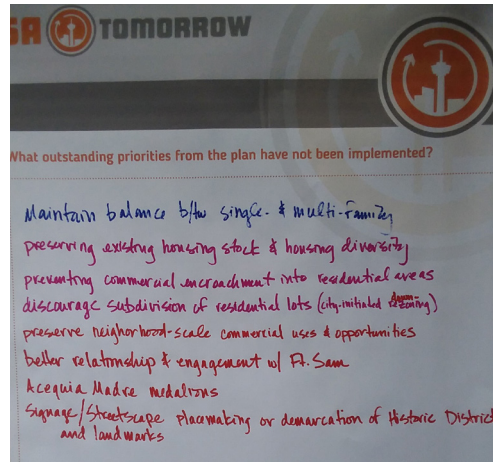 SA TOMORROW
What outstanding priorities from the plan have not been implemented?
Maintain balance b/tw single- & multi-family
preserving existing housing stock & housing diversity
preventing commercial encroachment into residential areas
discourage subdivision of residential lots (city-initiated down-zoning)
preserve neighorhood-scale commercial uses & opportunities
better relationship & engagement w/ Ft. Sam
Acequia Madre medalions
Signage/Streetscape placemaking or demarcation of Historic Distric
and landmarks